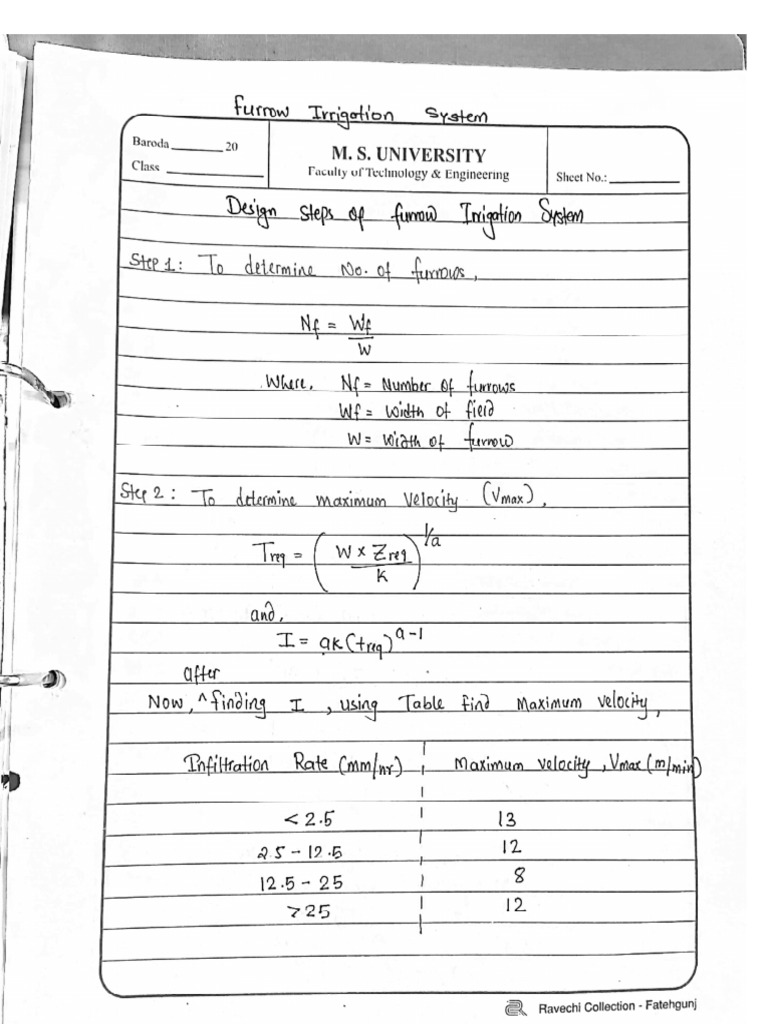 Furrow Irrigation System
Baroda ________ 20
Class ____________
M. S. UNIVERSITY
Faculty of Technology & Engineering
Sheet No.: __________
Design steps of furrow Irrigation System
Step 1: To determine No. of furrows,
Nf = Wf / W
Where, Nf = Number of furrows
Wf = Width of field
W = Width of furrow
Step 2: To determine maximum velocity (Vmax),
Treq = (W × Zreq / K)^1/a
and,
I = ak(treq)^a-1
after
Now, ^ finding I, using Table find Maximum velocity,
Infiltration Rate (mm/hr) Maximum velocity, Vmax (m/min)
< 2.5 13
2.5 - 12.5 12
12.5 - 25 8
> 25 12
Ravechi Collection - Fatehgunj